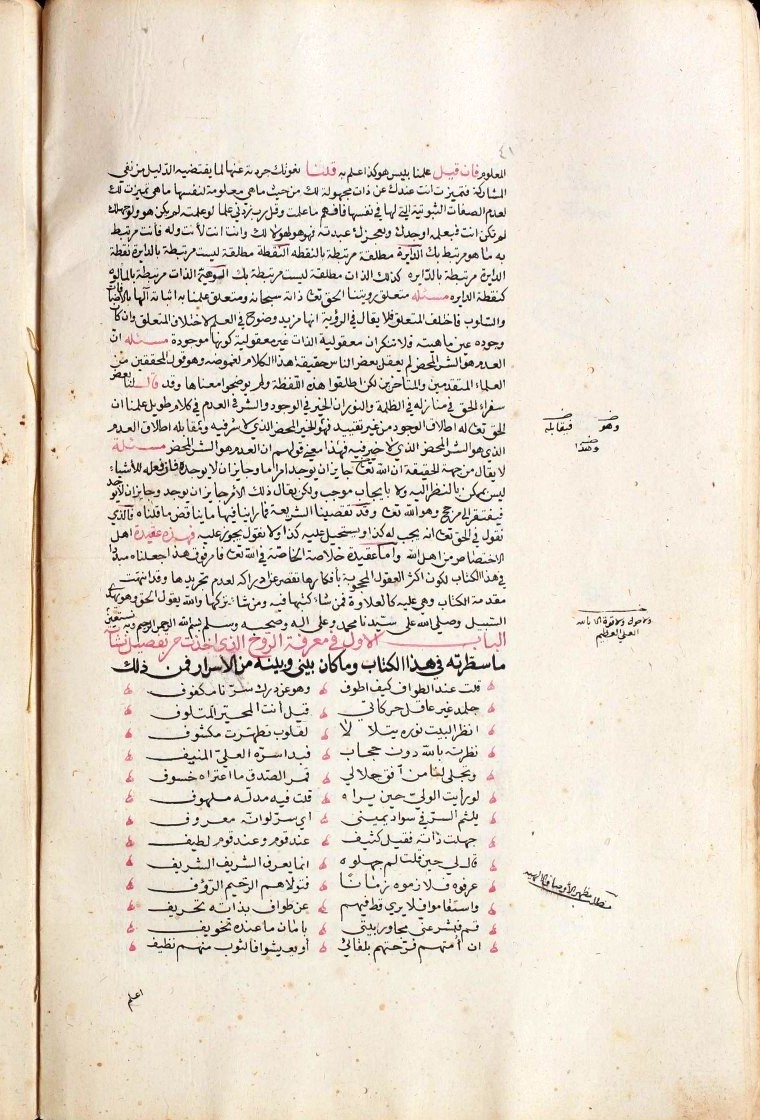 ٤١
المعلوم فان قيل علمنا بليس هو كذا علم به قلنا نعوتك جردته عنها لما يقتضيه الدليل من نفي
المشاركة فتميزت انت عندك عن ذات مجهولة لك من حيث ما هي معلومة لنفسها ما هي تميزت لك
لعدم الصفات الثبوتية التي لها في نفسها فافهم ما علمت وقل رب زدني علما لو علمته لم يكن هو ولو جهلك
لم تكن انت فبعلمه اوجدك وبعجزك عبدته فهو هو لهو لا لك وانت انت لانت وله فانت مرتبط
به ما هو مرتبط بك الدايرة مطلقة مرتبطة بالنقطه النقطة مطلقة ليست مرتبطة بالدايرة نقطة
الدايرة مرتبطة بالدايره كذلك الذات مطلقة ليست مرتبطة بك الوهية الذات مرتبطة بالمالوه
كنقطة الدايره مسئله متعلق رويتنا الحق تعالى ذاته سبحانه ومتعلق علمنا به اثباته الها بالاضافات
والسلوب فاختلف المتعلق فلا يقال في الرؤية انها مزيد وضوح في العلم لاختلاف المتعلق وان كان
وجوده عين ماهيته فلا ننكر ان معقولية الذات غير معقولية كونها موجودة مسئله ان
العدم هو الشر المحض لم يعقل بعض الناس حقيقة هذا الكلام لغموضه وهو قول المحققين من
العلماء المتقدمين والمتاخرين لكن اطلقوا هذه اللفظة ولم يوضحوا معناها وقد قال لنا بعض
سفراء الحق في منازله في الظلمة والنور ان الخير في الوجود والشر في العدم في كلام طويل علمنا ان
الحق تعالى له اطلاق الوجود من غير تقييد فهو الخير المحض الذي لا شر فيه ومقابله اطلاق العدم
الذي هو الشر المحض الذي لا خير فيه فهذا معنى قولهم ان العدم هو الشر المحض مسئلة
لا يقال من جهة الحقيقة ان الله تعالى جايز ان يوجد امرا ما وجايز ان لا يوجده فان فعله للاشياء
ليس بممكن بالنظر اليه ولا بايجاب موجب ولكن يقال ذلك الامر جايز ان يوجد وجايز ان لا يوجد
فيفتقر الى مرجح وهو الله تعالى وقد تقصينا الشريعة فما راينا فيها ما يناقض ما قلناه فالذي
نقول في الحق تعالى انه يجب له كذا ويستحيل عليه كذا ولا نقول يجوز عليه فهذه عقيدة اهل
الاختصاص من اهل الله واما عقيدة خلاصة الخاصة في الله تعالى فامر فوق هذا جعلناه مبددا
في هذا الكتاب لكون اكثر العقول المحجوبة بافكارها تقصر عن دراكه لعدم تجريدها وقد انتهت
مقدمة الكتاب وهي عليه كالعلاوة فمن شاء كتبها فيه ومن شاء تركها والله يقول الحق وهو يهدي
السبيل وصلى الله على سيدنا محمد وعلى اله وصحبه وسلم بسم الله الرحمن الرحيم وبه نستعين
الباب الاول في معرفة الروح الذي اخذت من تفصيل نشأته
ما سطرته في هذا الكتاب وما كان بيني وبينه من الاسرار فمن ذلك
قلت عند الطواف كيف اطوف وهو عن درك سرنا مكفوف
جلمد غير عاقل حركاتي قيل أنت المحير المتلوف
انظر البيت نوره يتلالا لقلوب تطهرت مكشوف
نظرته بالله دون حجاب فبدا سره العلي المنيف
وتجلى لها من أفق جلالي قمر الصدق ما اعتراه خسوف
لو رأيت الولي حين يراه قلت فيه مدله ملهوف
يلثم السر في سواد يميني اي سر لو انه معروف
جهلت ذاته فقيل كثيف عند قوم وعند قوم لطيف
قال لي حين قلت لم جهلوه انما يعرف الشريف الشريف
عرفوه فلازموه زمانا فتولاهم الرحيم الرؤف
واستقاموا فلا يرى قط فيهم عن طواف بذاته تحريف
قم فبشر عني مجاور بيتي بامان ما عنده تخويف
ان أمتهم فرحتهم بلقائي أو يعيشوا فالثوب منهم نظيف
وهو فيقابله
وهذا
ولا حول ولا قوة الا بالله
العلي العظيم
اعلم